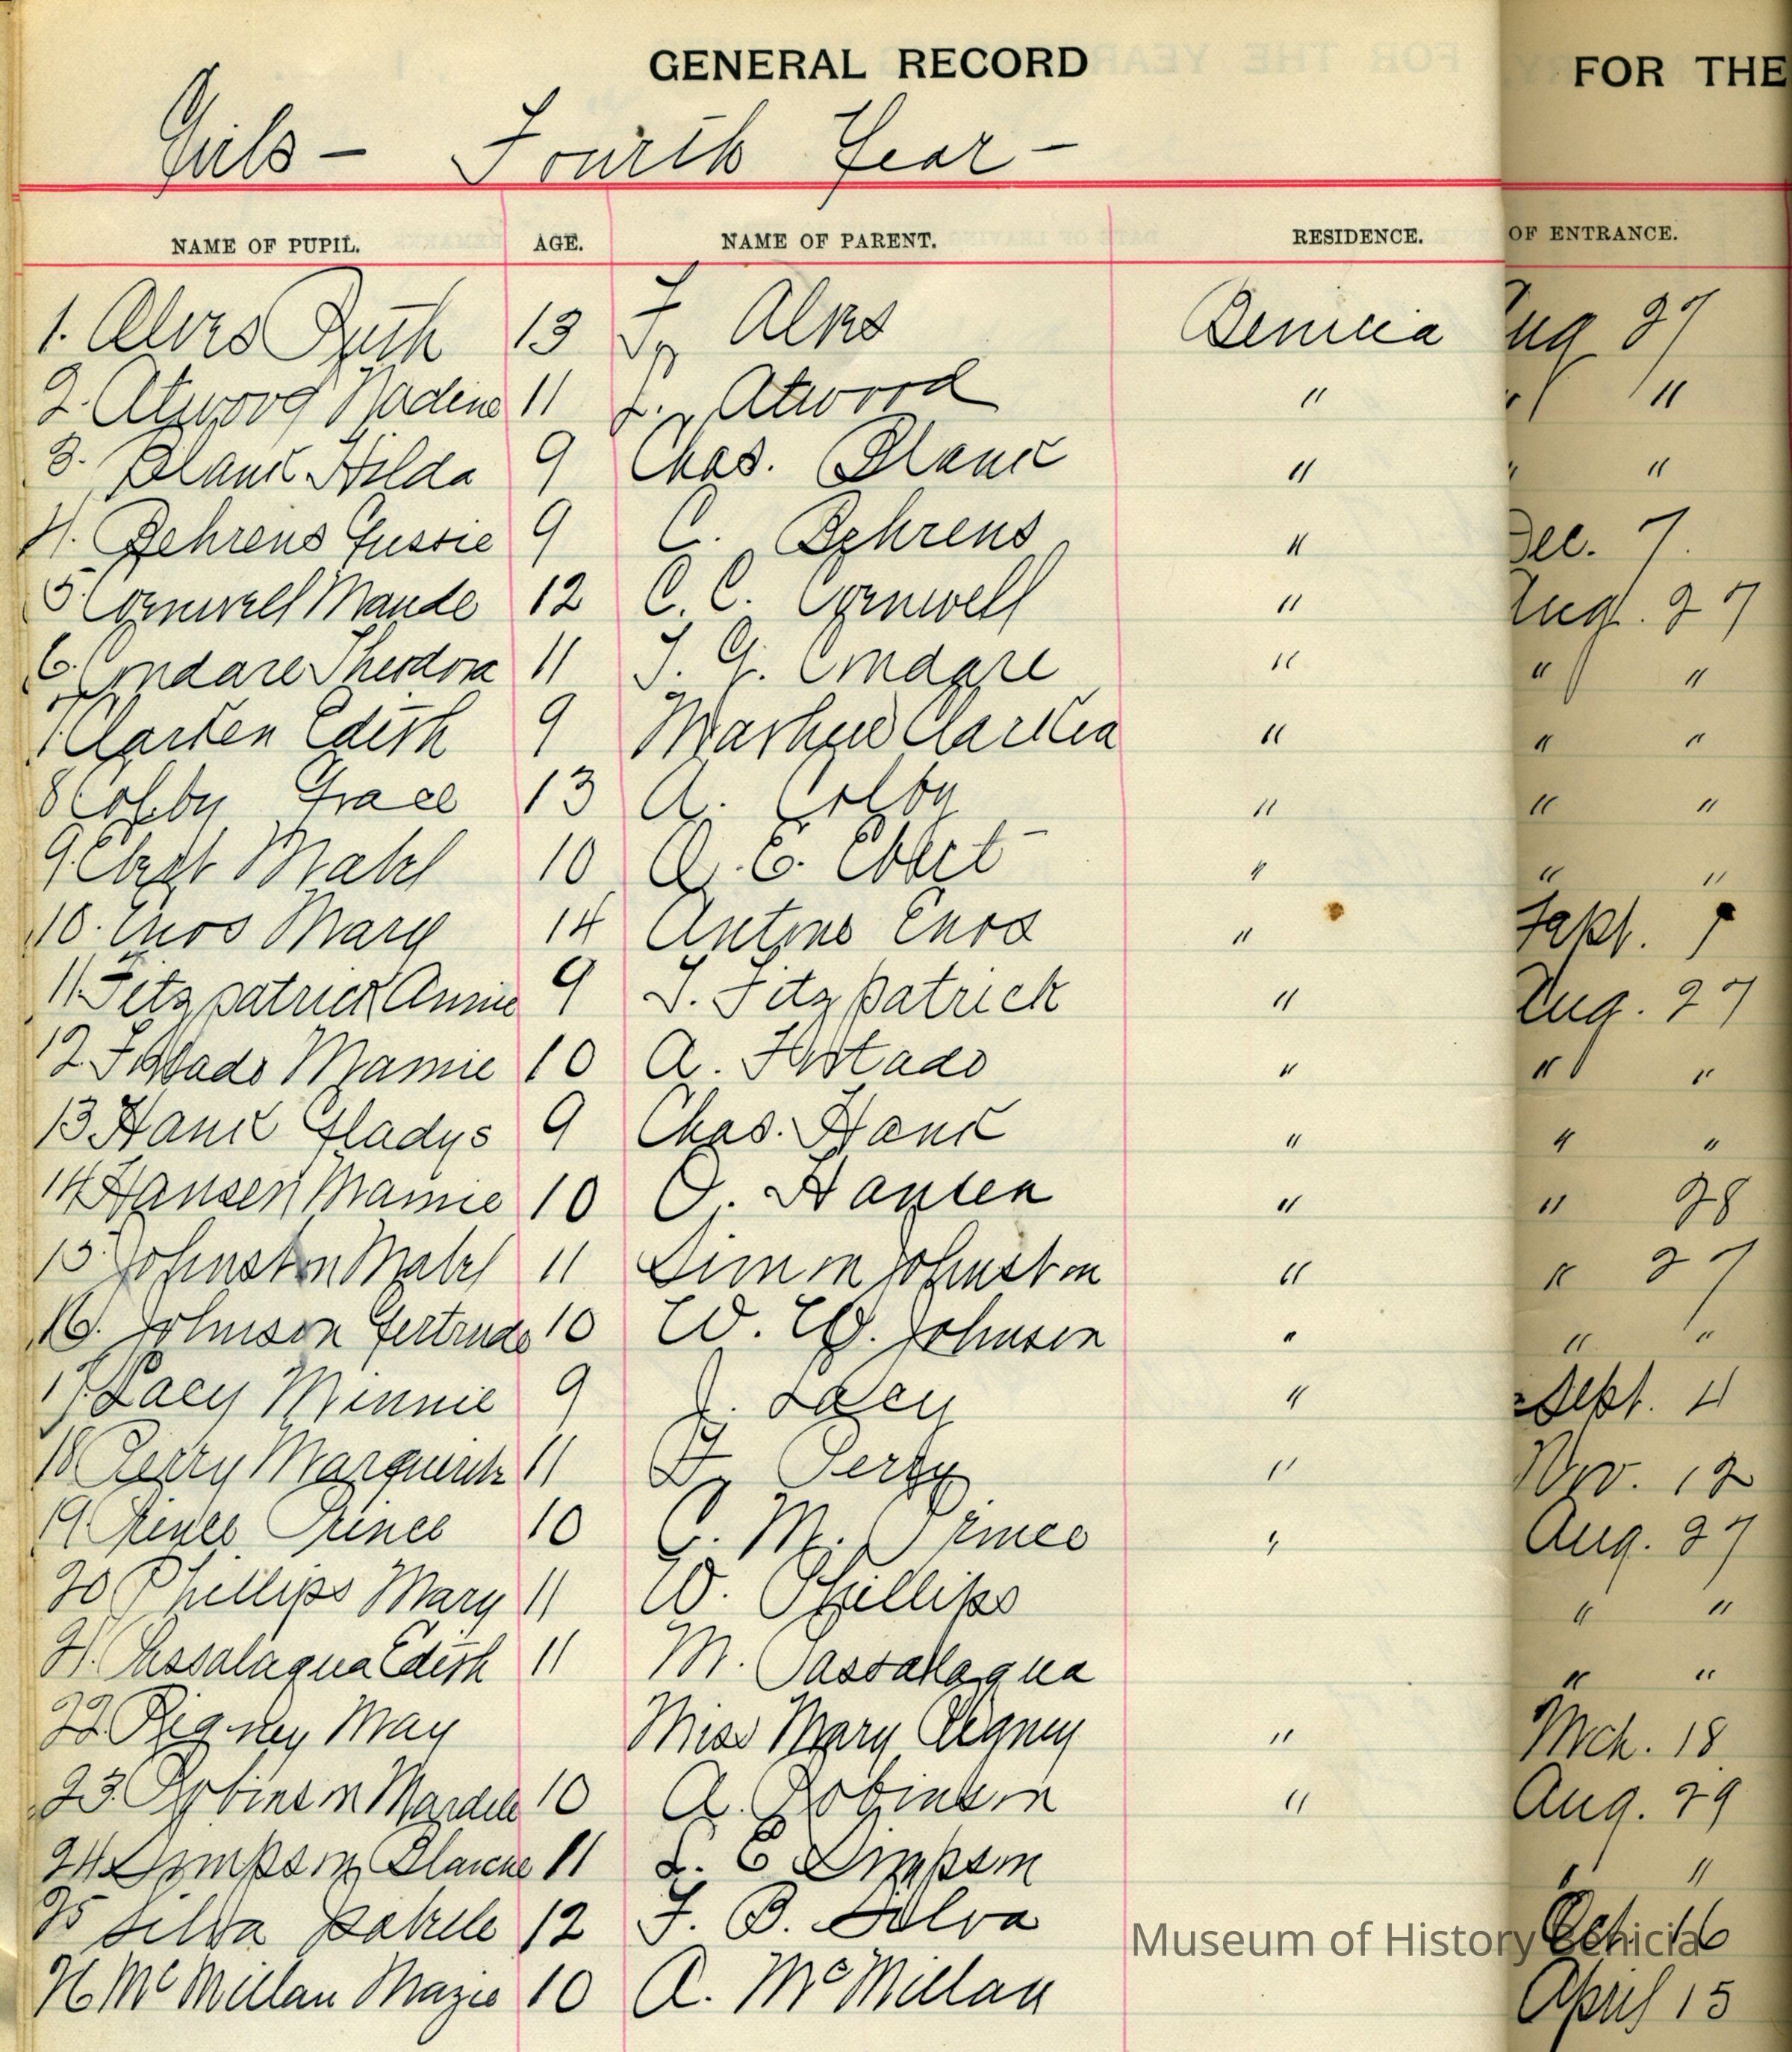 GENERAL RECORD FOR THE
Girls - Fourth Year -
NAME OF PUPIL. AGE. NAME OF PARENT. RESIDENCE. OF ENTRANCE.
1. Alvrs Ruth 13 Alvrs Benicia Aug 27
2. Atwood Nadine 11 L. Atwood " " "
3. Blanck Hilda 9 Chas. Blanck " " "
4. Behrens Gussie 9 C. Behrens " Dec. 7.
5. Cornwell Maude 12 C. C. Cornwell " Aug. 27
6. Theodora 11 " " "
7. Edith 9 " " "
8 Colby Grace 13 A. Colby " " "
9. Ebert Mabel 10 A. E. Ebert " " "
10. Enos Mary 14 Antone Enos " Sept.
11 Fitzpatrick Annie 9 J. Fitzpatrick " Aug. 27
12. Furtado Mamie 10 A. Furtado " " "
13 Hanck Gladys 9 Chas. Hanck " " "
14 Hansen Mamie 10 O. Hansen " " 28
15. Johnston Mabel 11 Simon Johnston " " 27
16. Johnson Gertrude 10 W. W. Johnson " " "
17. Lacy Minnie 9 J. Lacy " Sept. 4
18 Perry Marguerite 11 F. Perry " Nov. 12
19. Prince 10 C. M. Prince " Aug. 27
20 Phillips Mary 11 W. Phillips " "
21. Passalaqua Edith 11 M. Passalaqua " "
22. Rigney May Miss Mary Rigney " Mch. 18
23. Robinson 10 A. Robinson " Aug. 29
24 Simpson 11 L. E Simpson " "
25 Silva 12 F. B. Silva Oct. 16
26 McMillan Mazie 10 A. McMillan April 15
Museum of History Benicia